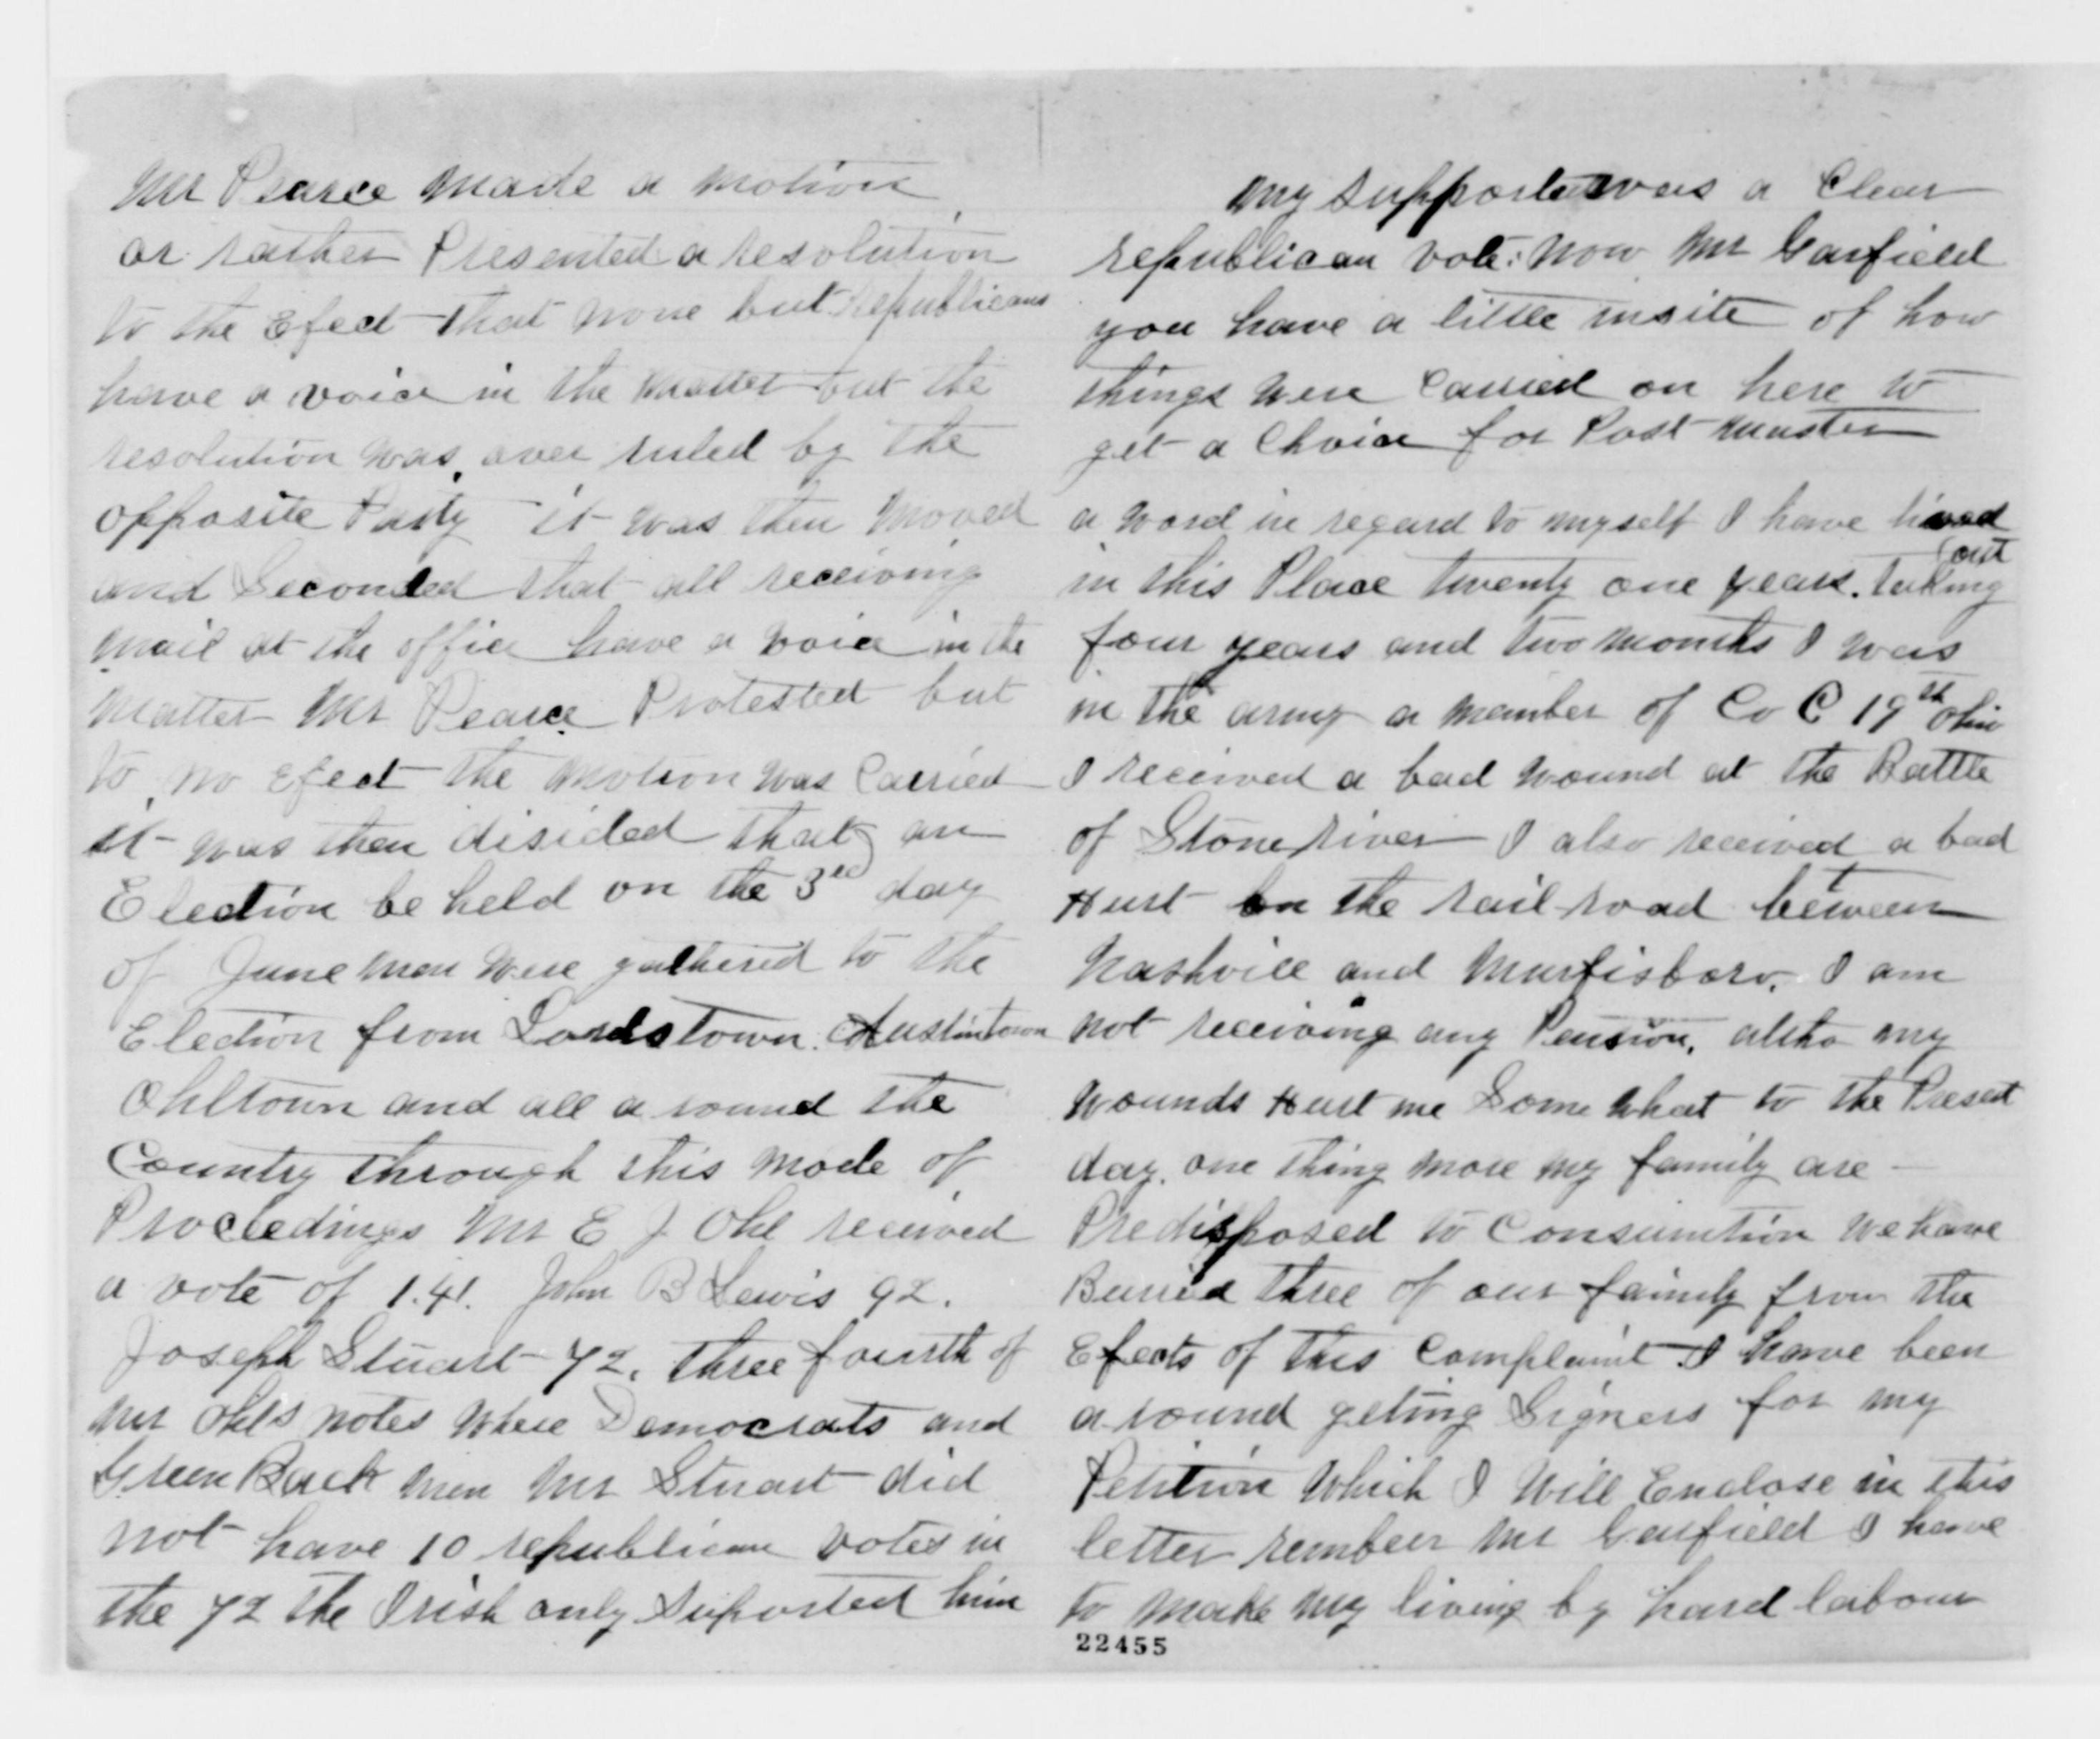 Mr Pearce made a motion
or rather Presented a resolution
to the Efect that none but republicans
have a voice in the matter but the
resolution was over ruled by the
opposite Party it was then moved
and Seconded that all receiving
mail at the office have a voice in the
matter Mr Pearce Protested but
to no Efect the motion was Carried
it was then disided that an
Election be held on the 3rd day
of June men were gathered to the
Election from Lordstown Austintown
Ohltown and all a round the
Country through this mode of
Proceedings Mr E J Ohl received
a vote of 141. John B Lewis 92.
Joseph Stuart 72. three fourth of
Mr Ohls votes where Democrats and
Green Back men Mr Stuart did
not have 10 republican votes in
the 72 the Irish only suported him
my supporters was a Clear
republican vote: now Mr Garfield
you have a little insite of how
things were Carried on here to
get a Choice for Post Master
a word in regard to myself I have lived
in this Place twenty one years. taking out
four years and two months I was
in the army a member of Co C 19th Ohio
I received a bad wound at the Battle
of Stone river I also received a bad
Hurt on the rail road between
Nashvill and Murfisboro. I am
not receiving any Pension, altho my
wounds Hurt me Some what to the Preset
day. one thing more my family are
Predisposed to Consumtion we have
Buried three of our faimly from the
Efects of this Complaint I have been
a round geting Signers for my
Petition which I will Enclose in this
letter rember Mr Garfield I have
to make my living by hard labour
22455